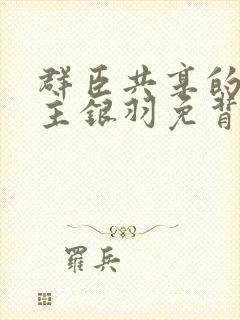 群臣共享的
主银羽免背
羅兵